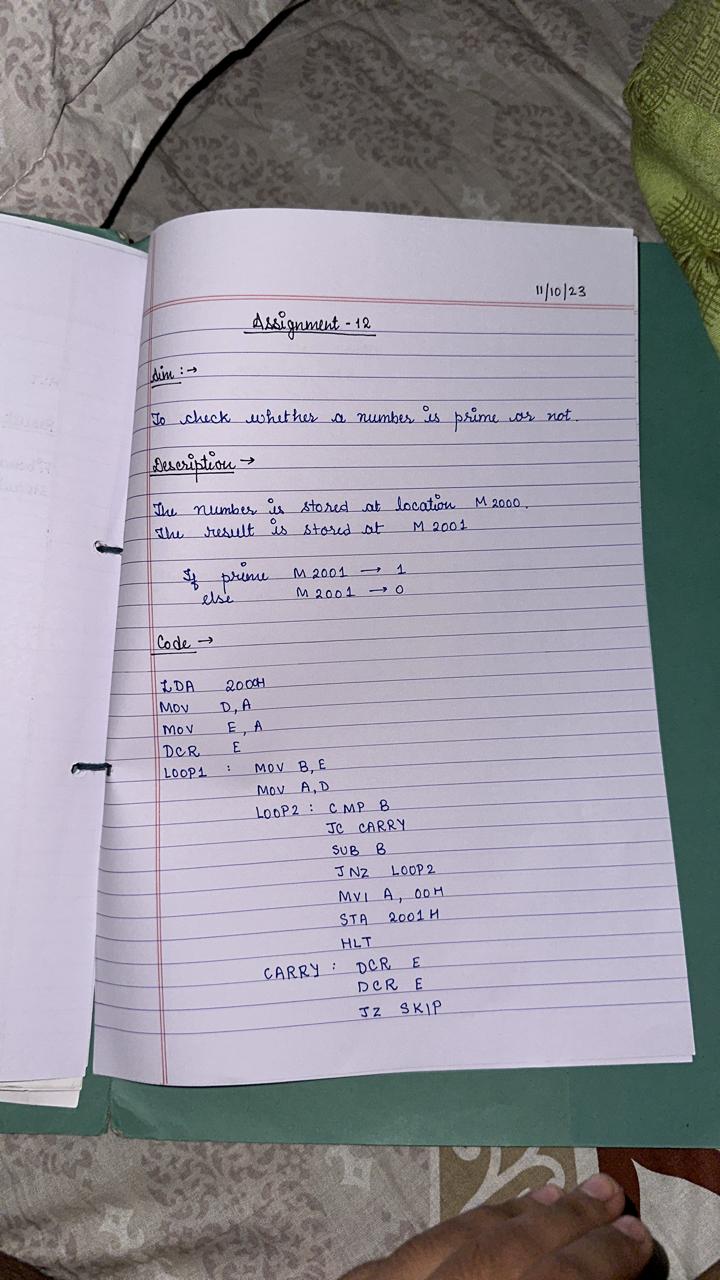 11/10/23
Assignment - 12
Aim : →
To check whether a number is prime or not.
Description →
The number is stored at location M 2000.
The result is stored at M 2001
If prime M 2001 → 1
else M 2001 → 0
Code →
LDA 2000H
MOV D, A
MOV E, A
DCR E
LOOP1 : MOV B, E
MOV A, D
LOOP2 : CMP B
JC CARRY
SUB B
JNZ LOOP2
MVI A, 00H
STA 2001H
HLT
CARRY : DCR E
DCR E
JZ SKIP